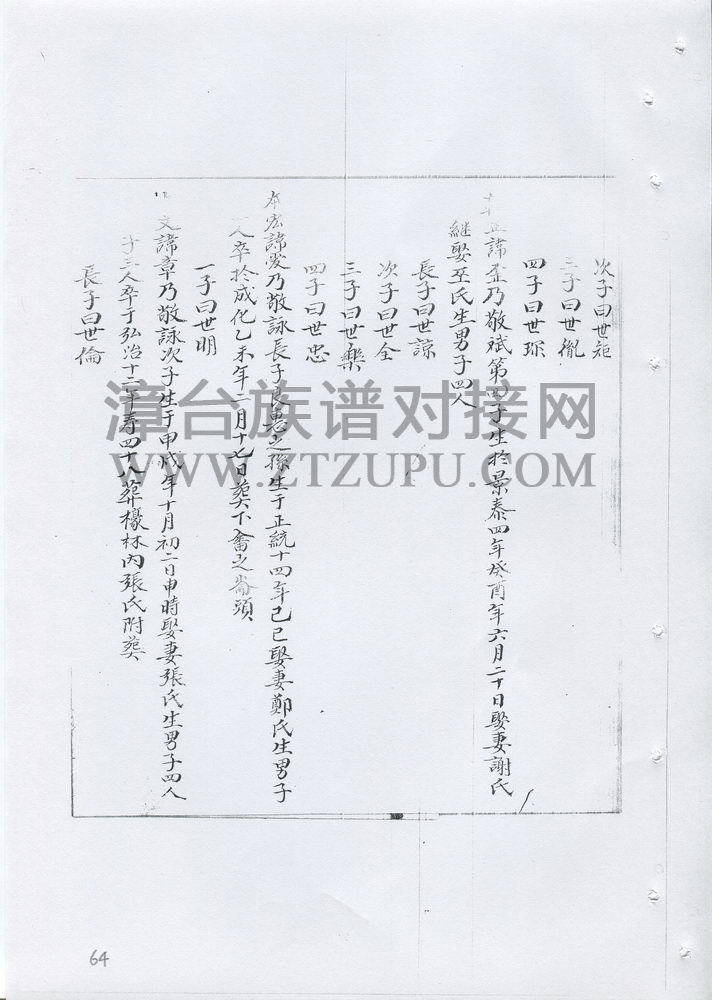 次子曰世矩
三子曰世胤
四子曰世琛
正諱孟乃敬斌第四子生於景泰四年癸酉年六月二十日娶妻謝氏
継娶巫氏生男子四人
長子曰世諒
次子曰世全
三子曰世樂
四子曰世忠
宏諱受乃敬詠長子良惠之孫生于正統十四年己巳娶妻鄭氏生男子
人卒於成化乙未年二月十七日葬下畬之崙頭
一子曰世明
文諱章乃敬詠次子生于甲戌年十月初二日申時娶妻張氏生男子四人
子三人卒于弘治十二年寿四十八葬檺林内張氏附葬
長子曰世倫
漳台族谱对接网
WWW.ZTZUPU.COM
64